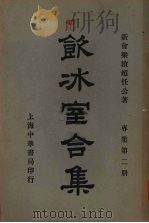 研狗
新會梁啟超任公著 專集第二册
飲冰室合集
上海中華書局印行